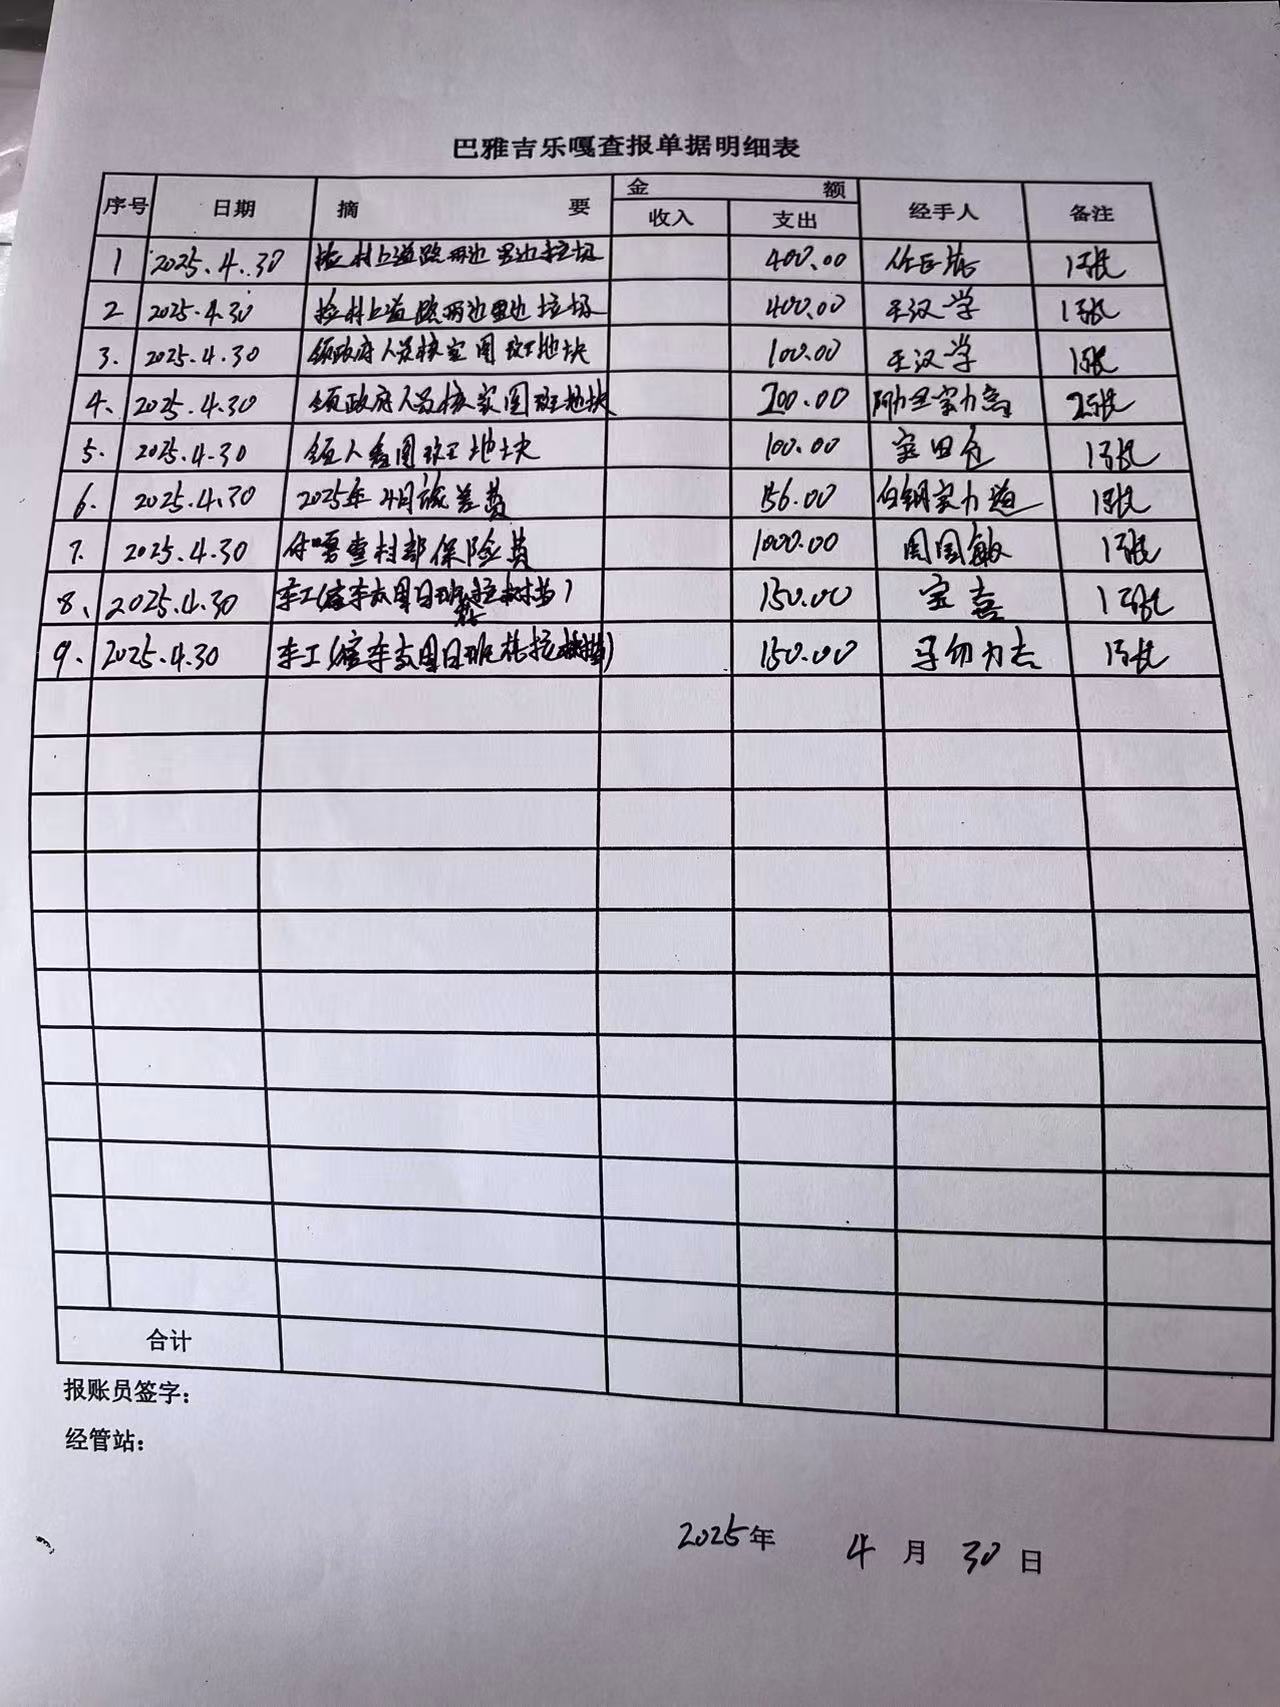 巴雅吉乐嘎查报单据明细表
序号 日期 摘要 金额 经手人 备注
收入 支出
1 2025.4.30 捡村上道路两边里边垃圾 400.00 1张
2 2025.4.30 捡村上道路两边里边垃圾 400.00 王汉学 1张
3. 2025.4.30 领政府人员核实图斑地块 100.00 王汉学 1张
4. 2025.4.30 领政府人员核实图斑地块 200.00 2张
5. 2025.4.30 领人看图斑地块 100.00 宝田仓 1张
6. 2025.4.30 2025年4月误差费 156.00 白钢宝力道 1张
7. 2025.4.30 付嘎查村部保险费 1000.00 周国敏 1张
8. 2025.4.30 车工( 拉树苗) 150.00 宝喜 1张
9. 2025.4.30 车工( 拉树苗) 150.00 1张
合计
报账员签字:
经管站:
2025年 4月 30日